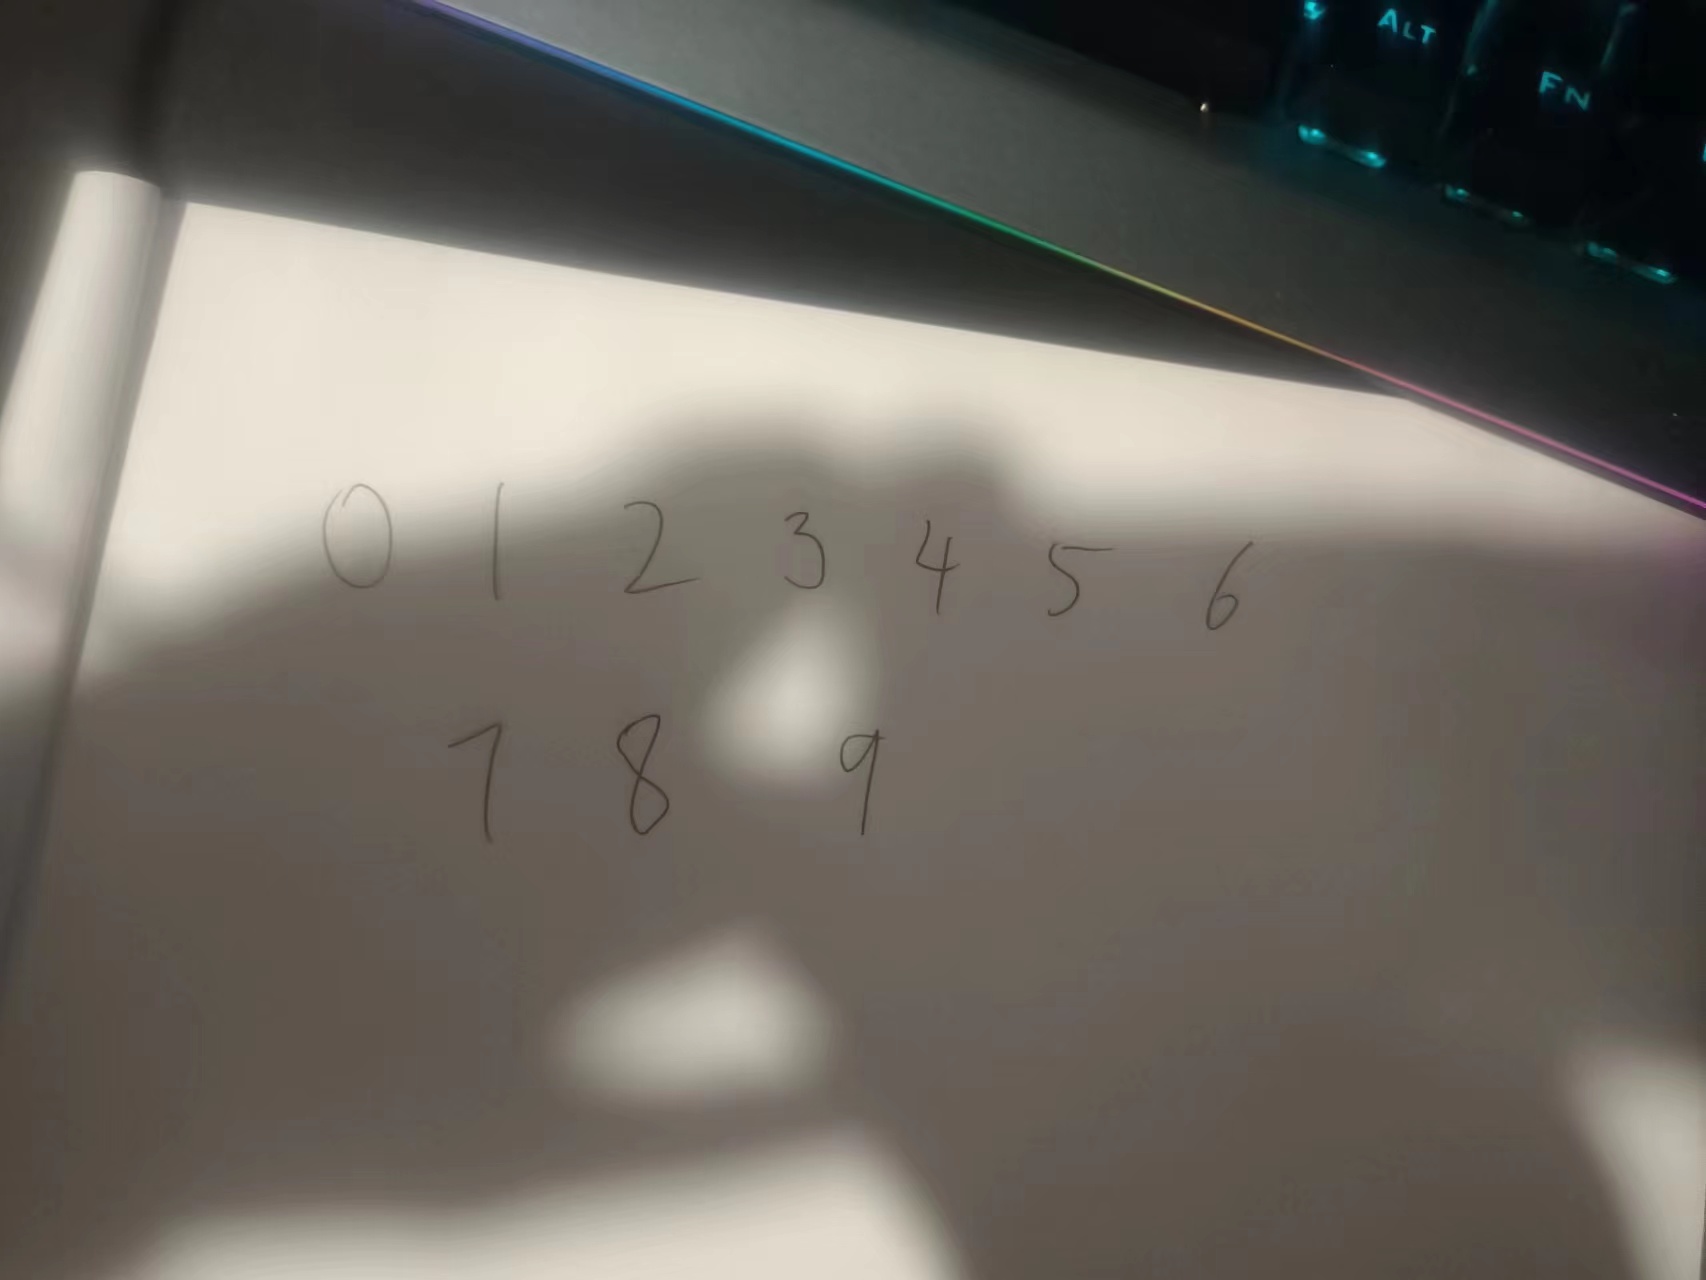 ALT
FN
0 1 2 3 4 5 6
7 8 9